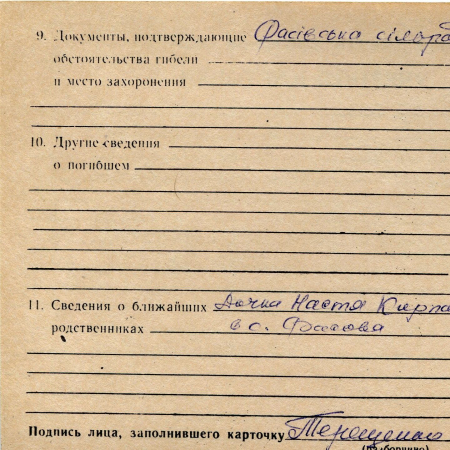 9. Документы, подтверждающие Фасівська сільра
обстоятельства гибели
и место захоронения
10. Другие сведения
о погибшем
11. Сведения о ближайших Дочка Настя Кирпа
родственниках в с. Фасова
Подпись лица, заполнившего карточку Терещенко
(разборчиво)